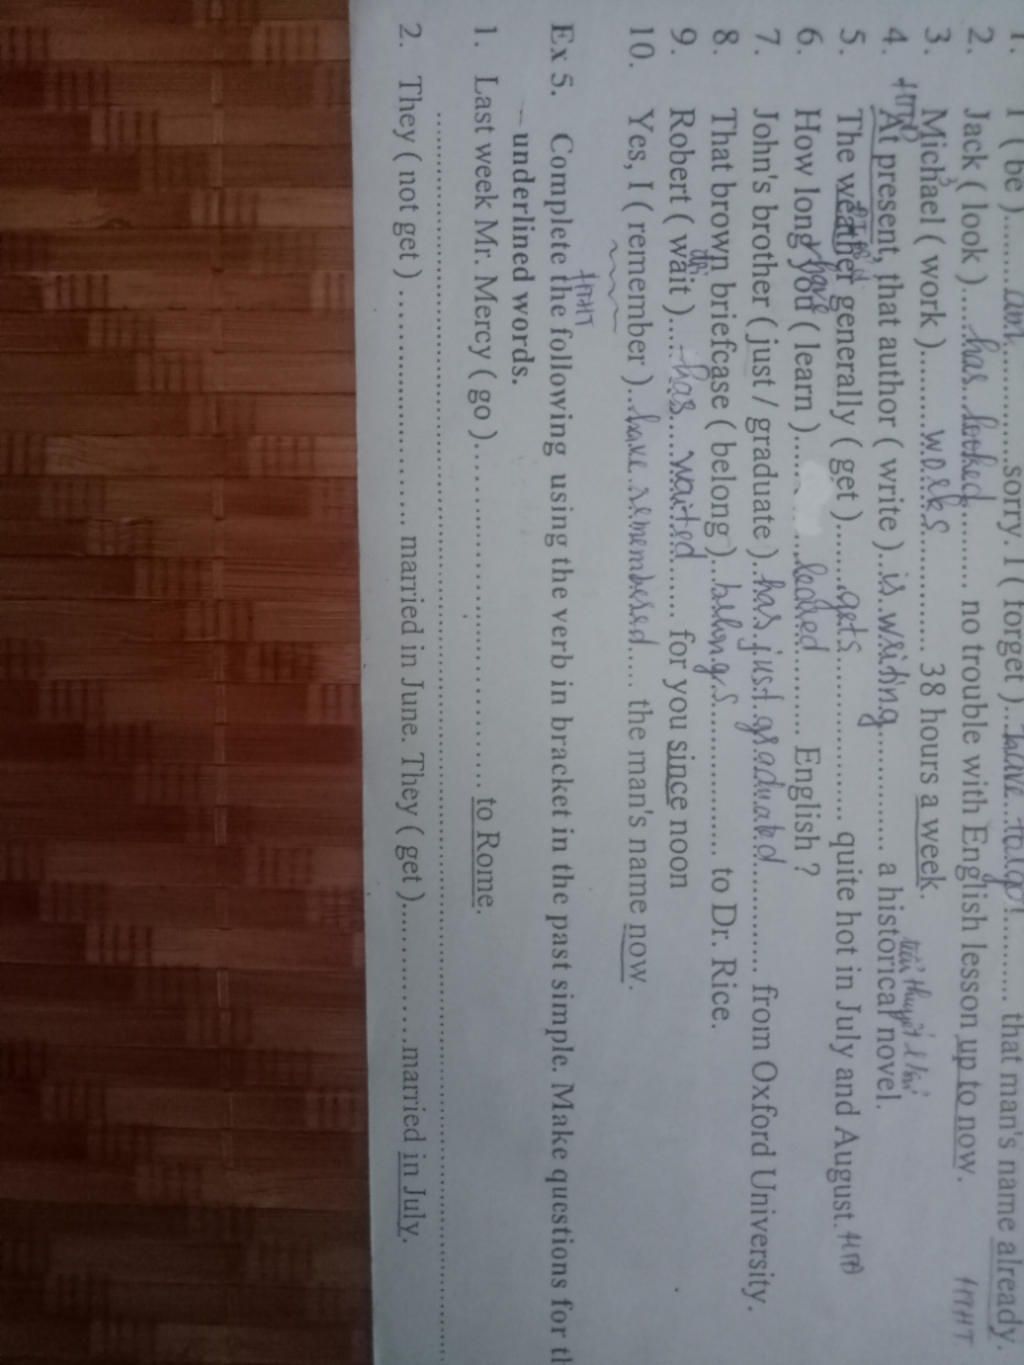 1. I ( be )....................sorry. I ( forget )...have........ that man's name already.
2. Jack ( look )....has..looked......... no trouble with English lesson up to now. HTHT
3. Michael ( work )........works............. 38 hours a week.
4. At present, that author ( write )..is..writing............. a historical novel.
5. The weather generally ( get )......gets.................. quite hot in July and August.
6. How long have you ( learn )........leaned......... English ?
7. John's brother ( just / graduate )..has.just.graduated............ from Oxford University.
8. That brown briefcase ( belong )...belongs.............. to Dr. Rice.
9. Robert ( wait )....has....waited....... for you since noon
10. Yes, I ( remember )..have.remembered.... the man's name now.
HTHT
Ex 5. Complete the following using the verb in bracket in the past simple. Make questions for
underlined words.
1. Last week Mr. Mercy ( go )........................................ to Rome.
2. They ( not get ) ............................ married in June. They ( get )................married in July.